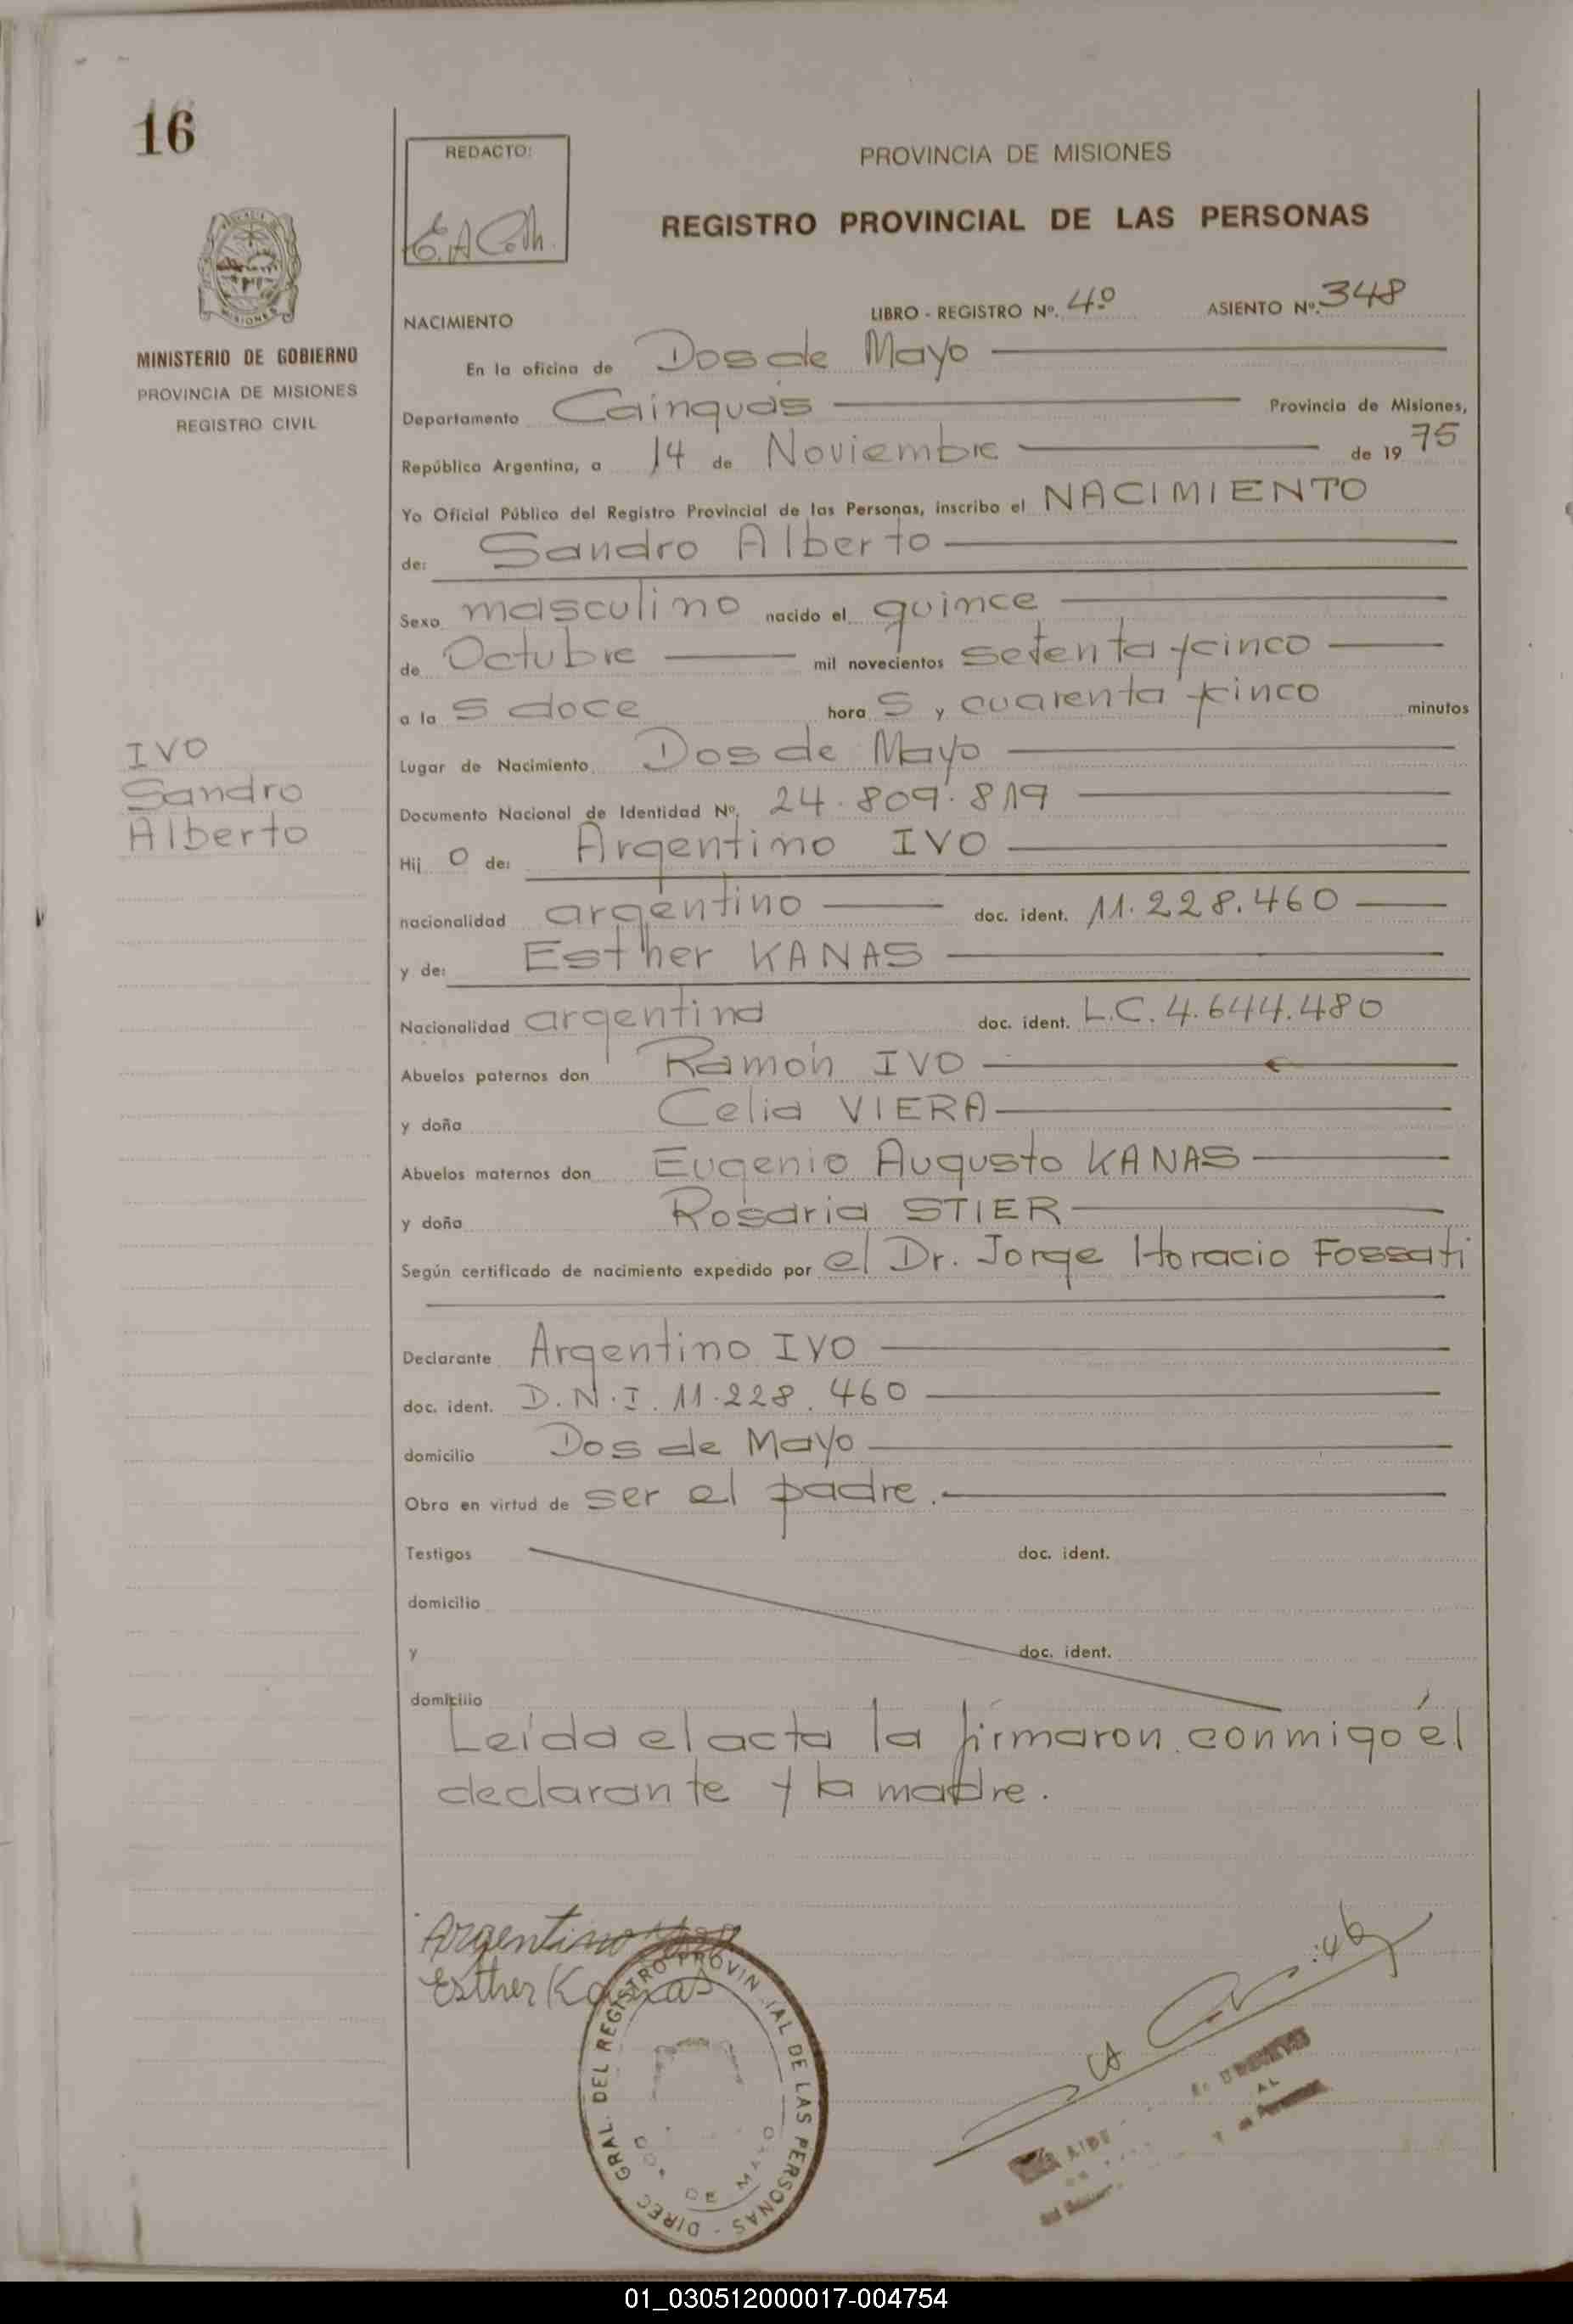 16
REDACTO:
PROVINCIA DE MISIONES
REGISTRO PROVINCIAL DE LAS PERSONAS
MISIONES
MINISTERIO DE GOBIERNO
PROVINCIA DE MISIONES
REGISTRO CIVIL
LIBRO - REGISTRO Nº. 4º ASIENTO Nº. 348
NACIMIENTO
En la oficina de Dos de Mayo
Departamento Cainguás Provincia de Misiones,
República Argentina, a 14 de Noviembre de 1975
Yo Oficial Público del Registro Provincial de las Personas, inscribo el NACIMIENTO
de: Sandro Alberto
Sexo masculino nacido el quince
de Octubre mil novecientos setenta y cinco
a la s doce hora s y cuarenta y cinco minutos
IVO
Sandro
Alberto
Lugar de Nacimiento Dos de Mayo
Documento Nacional de Identidad Nº. 24.809.819
Hij o de: Argentino IVO
nacionalidad argentino doc. ident. 11.228.460
y de: Esther KANAS
Nacionalidad argentina doc. ident. L.C. 4.644.480
Abuelos paternos don Ramón IVO
y doña Celia VIERA
Abuelos maternos don Eugenio Augusto KANAS
y doña Rosaria STIER
Según certificado de nacimiento expedido por el Dr. Jorge Horacio Fossati
Declarante Argentino IVO
doc. ident. D.N.I. 11.228.460
domicilio Dos de Mayo
Obra en virtud de ser el padre.
Testigos doc. ident.
domicilio
y doc. ident.
domicilio
Leída el acta la firmaron conmigo él
declarante y la madre.
Argentino
Esther Kanas
DIREC. GRAL. DEL REGISTRO PROVINCIAL DE LAS PERSONAS -
DOS DE MAYO
01_030512000017-004754